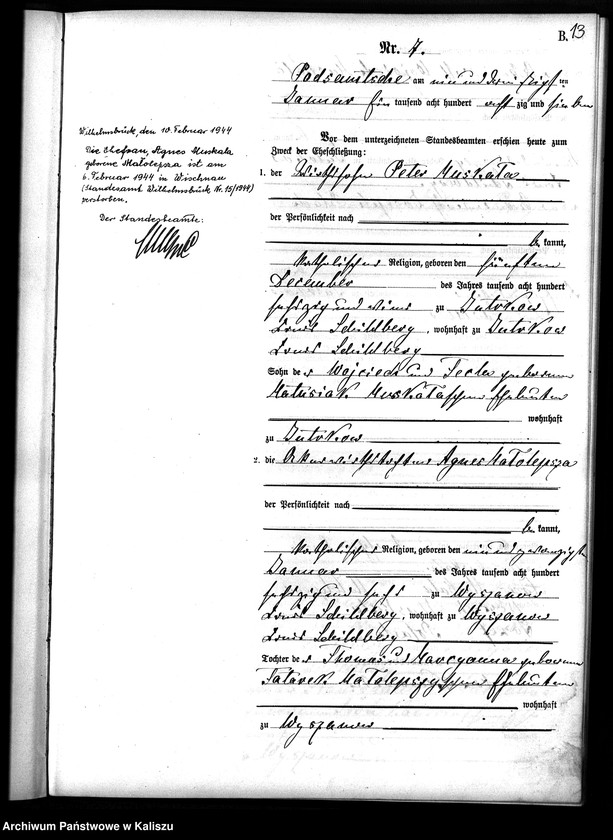 B. 13
Nr. 7.
Podsamtsche am ein und dreißigsten
Januar für tausend acht hundert acht zig und sieben
Vor dem unterzeichneten Standesbeamten erschien heute zum
Zweck der Eheschließung:
1. der Wirthssohn Peter Muskala
der Persönlichkeit nach
be kannt,
katholischer Religion, geboren den fünften
December des Jahres tausend acht hundert
sechszig und eins zu
Kreis Schildberg, wohnhaft zu
Kreis Schildberg
Sohn der Wojciech und Tecla geborene
Matusiak Muskalaschen Eheleuten
wohnhaft
zu
2. die Agnes Małolepsza
der Persönlichkeit nach
be kannt,
katholischer Religion, geboren den ein und zwanzigsten
Januar des Jahres tausend acht hundert
sechszig und sechs zu Wyszanow
Kreis Schildberg, wohnhaft zu Wyszanow
Kreis Schildberg
Tochter der Thomas und Marcyanna geborene
Małolepszy schen Eheleuten
wohnhaft
zu Wyszanow
Wilhelmsbrück, den 10. Februar 1944
Die Ehefrau, Agnes Muskala
geborene Malolepsza ist am
6. Februar 1944 in Wischnau
(Standesamt Wilhelmsbrück Nr. 15/1944)
verstorben.
Der Standesbeamte:
Archiwum Państwowe w Kaliszu